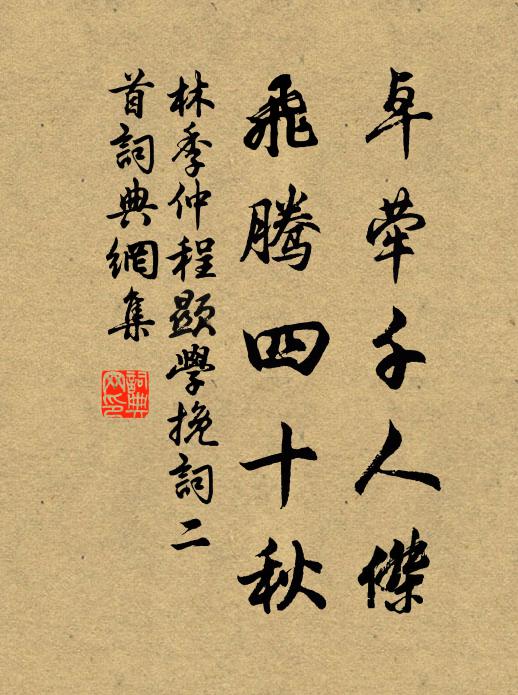 卓犖千人傑
飛騰四十秋
林季仲程顯學挽詞二
首詞典網集
詞典
网印